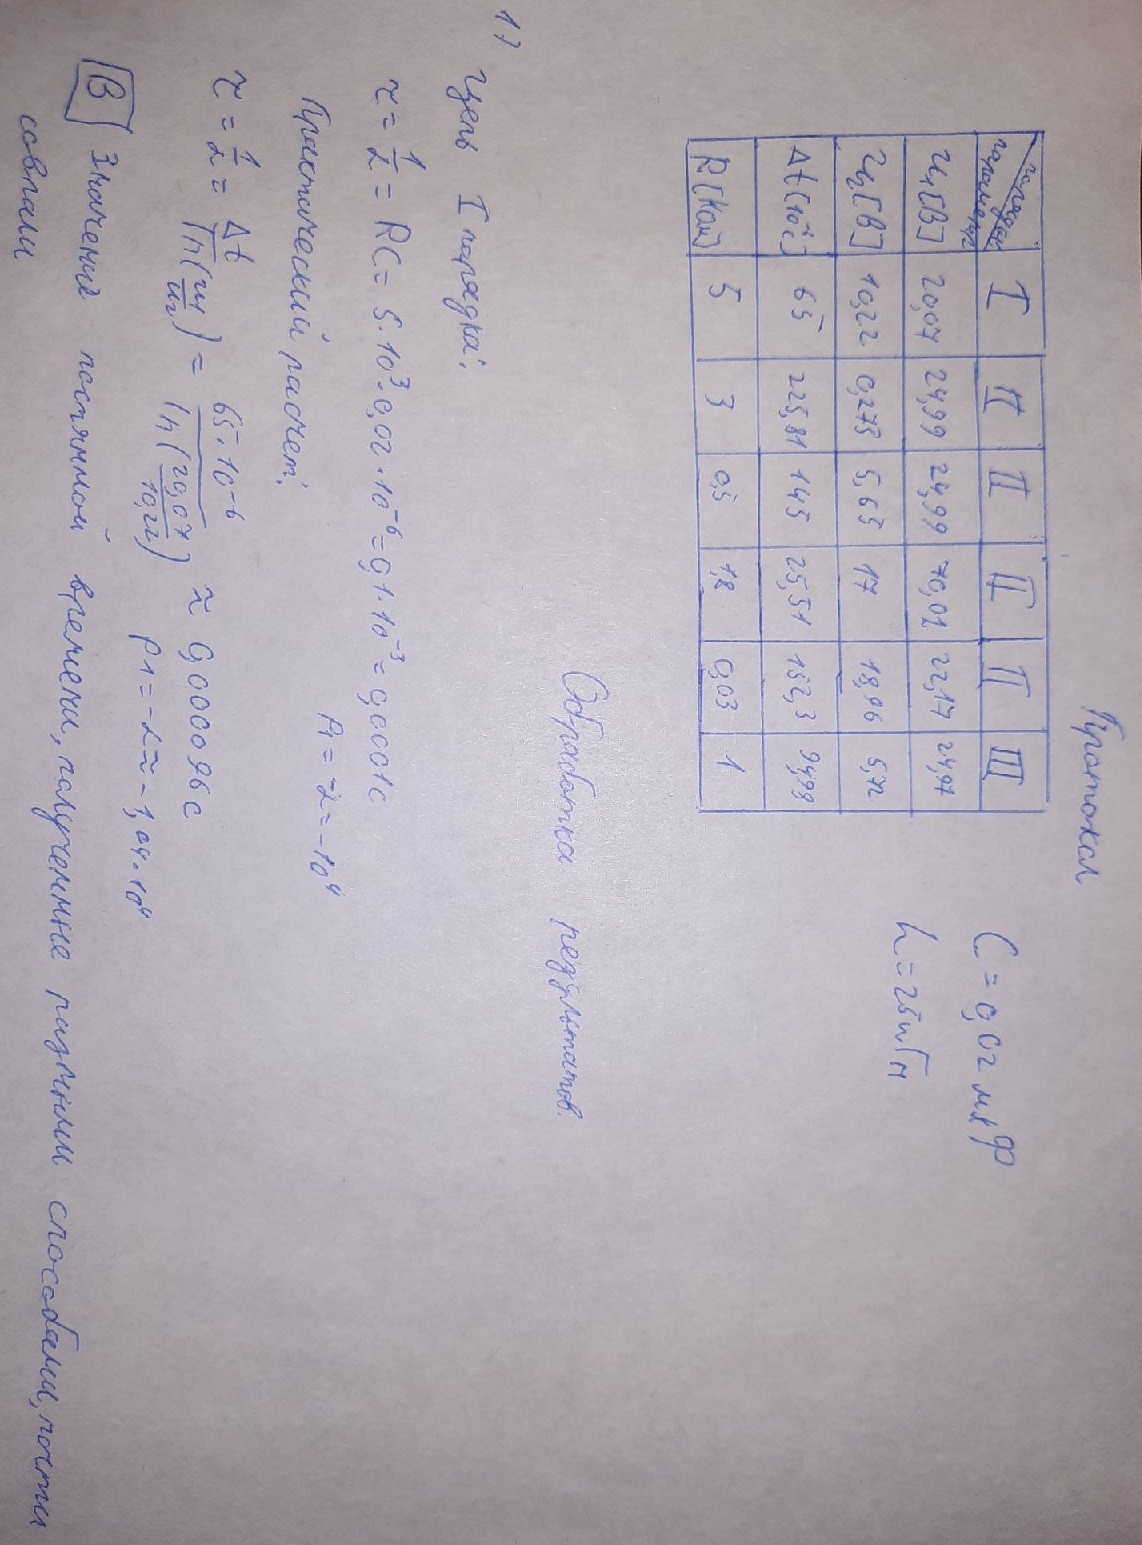 Протокол
порядок параметр I II II II II III
U₁[В] 20,07 24,99 24,99 70,02 22,17 24,97
U₂[В] 10,22 0,275 5,63 17 18,06 5,72
Δt(10⁻⁶c) 65 225,81 145 25,51 152,3 94,99
R[Ком] 5 3 0,5 1,8 0,03 1
C = 0,02 мкФ
L = 25мГн
Обработка результатов.
1) Цепь I порядка:
τ = 1/α = RC = 5·10³·0,02·10⁻⁶ = 0,1·10⁻³ = 0,0001c p₁ = -α = -10⁴
Практический расчет:
τ = 1/α = Δt/ln(u₁/u₂) = 65·10⁻⁶/ln(20,07/10,22) ≈ 0,000096 c p₁ = -α ≈ -1,04·10⁴
В Значения постянной времени, полученные разными способами, почти
совпали